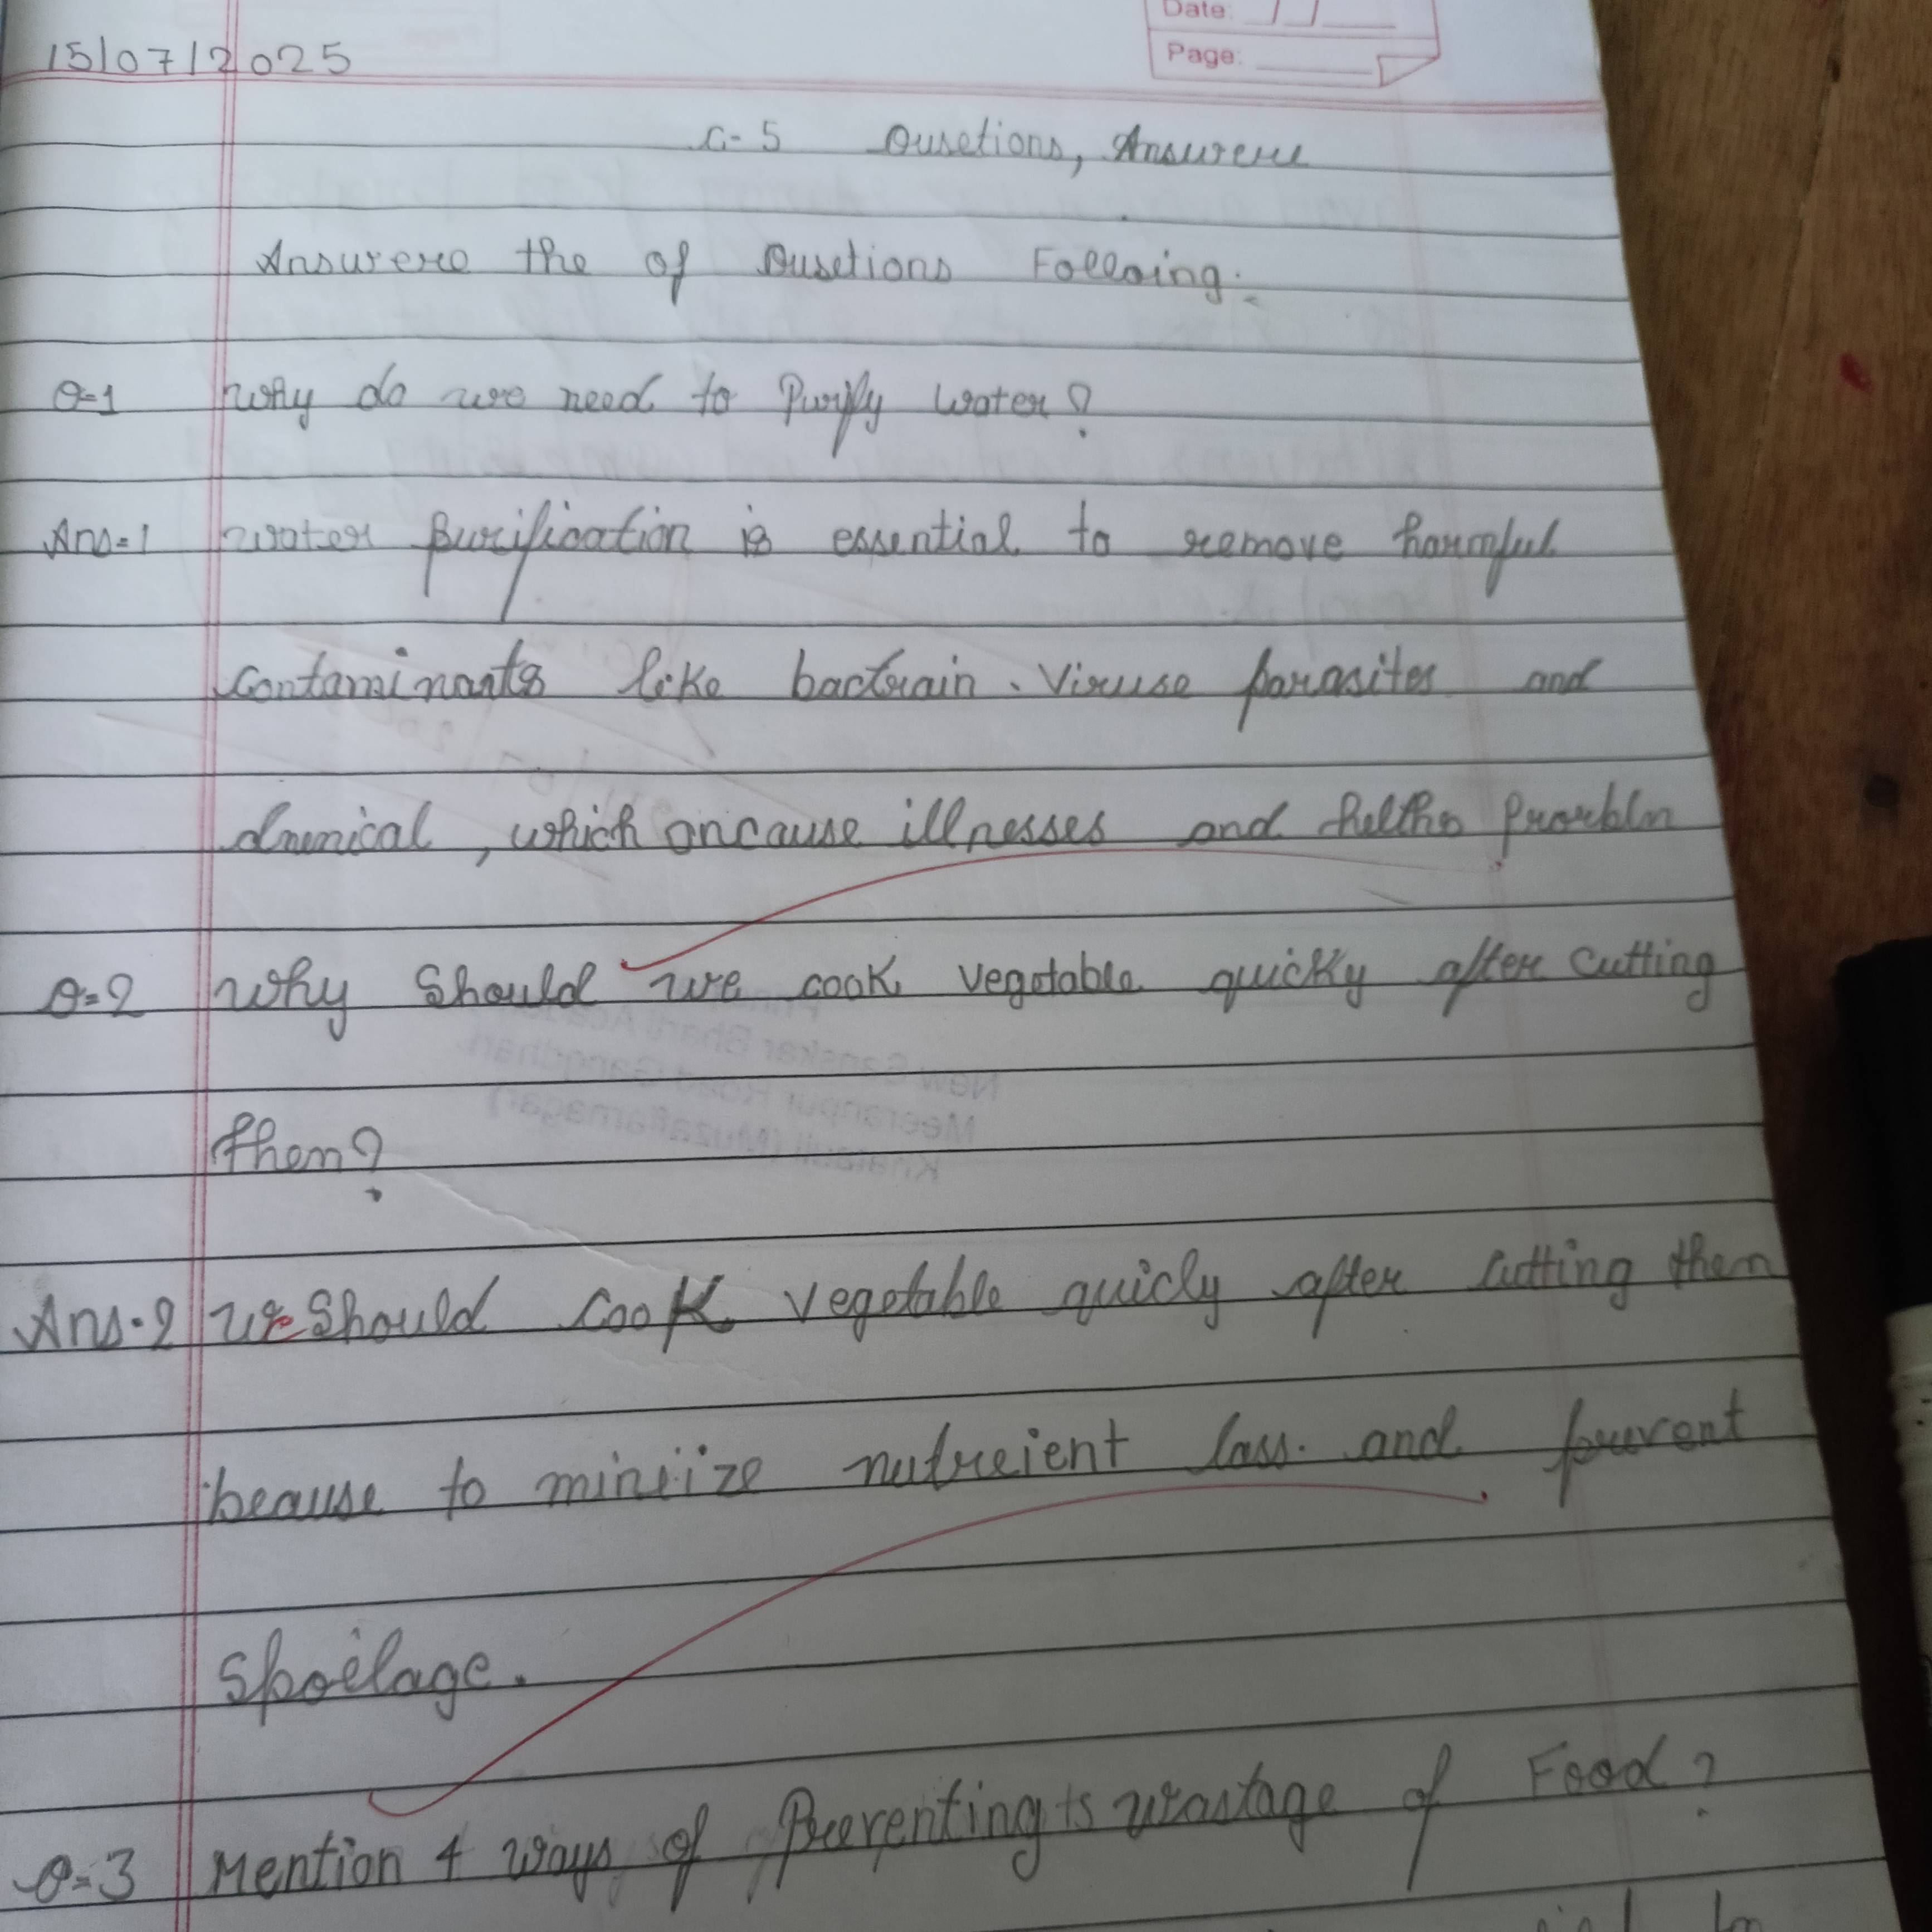 Date: / /
Page:
15/07/2025
C-5 Qusetions, Answere
Answere the of Qusetions Folloing:
Q=1 Why do we need to Purify Water?
Ans=1 water purification is essential to remove harmful
contaminants like bactrain. Viruse parasites and
chemical, which can cause illnesses and helths
Q=2 Why Should we cook vegetable quickly after cutting
them?
Ans-2 we Should cook vegetable quicly after cutting them
beause to miniize nutreient loss. and prevent
Spoilage.
Q=3 Mention 4 ways of Preventing is wastage of Food?